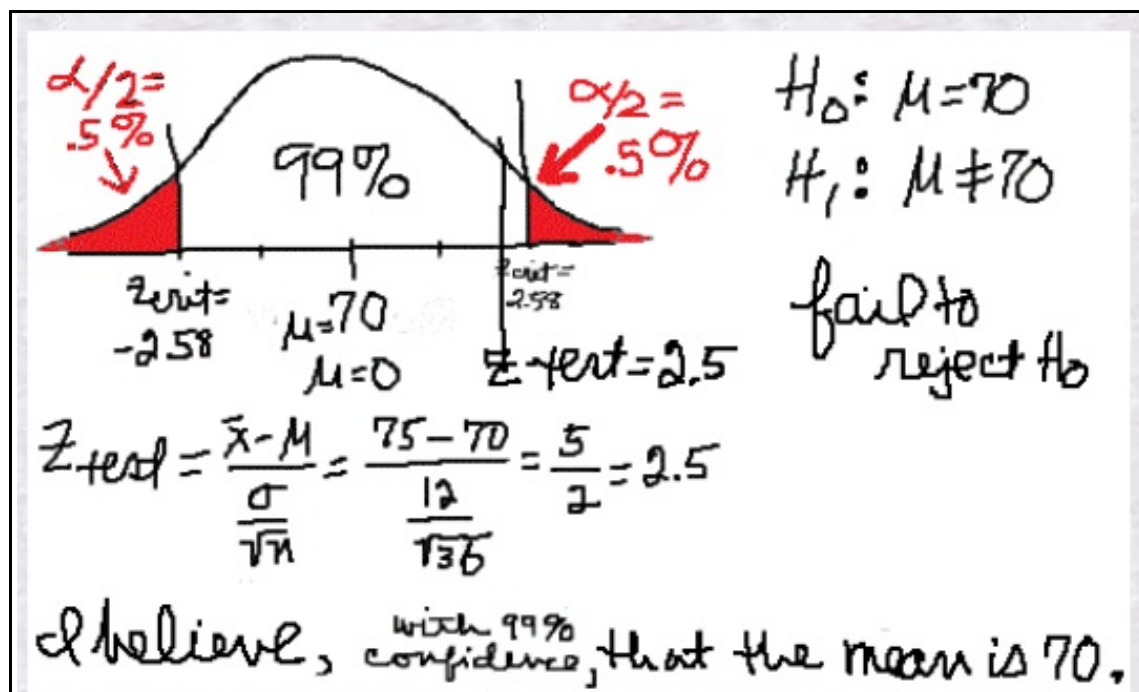 α/2=
.5%
99%
α/2=
.5%
H₀: μ=70
H₁: μ≠70
zcrit=
-2.58
μ=70
μ=0
zcrit=
2.58
z test=2.5
fail to
reject H₀
Ztest = (x̄-μ)/(σ/√n) = (75-70)/(12/√36) = 5/2 = 2.5
I believe, with 99% confidence, that the mean is 70.